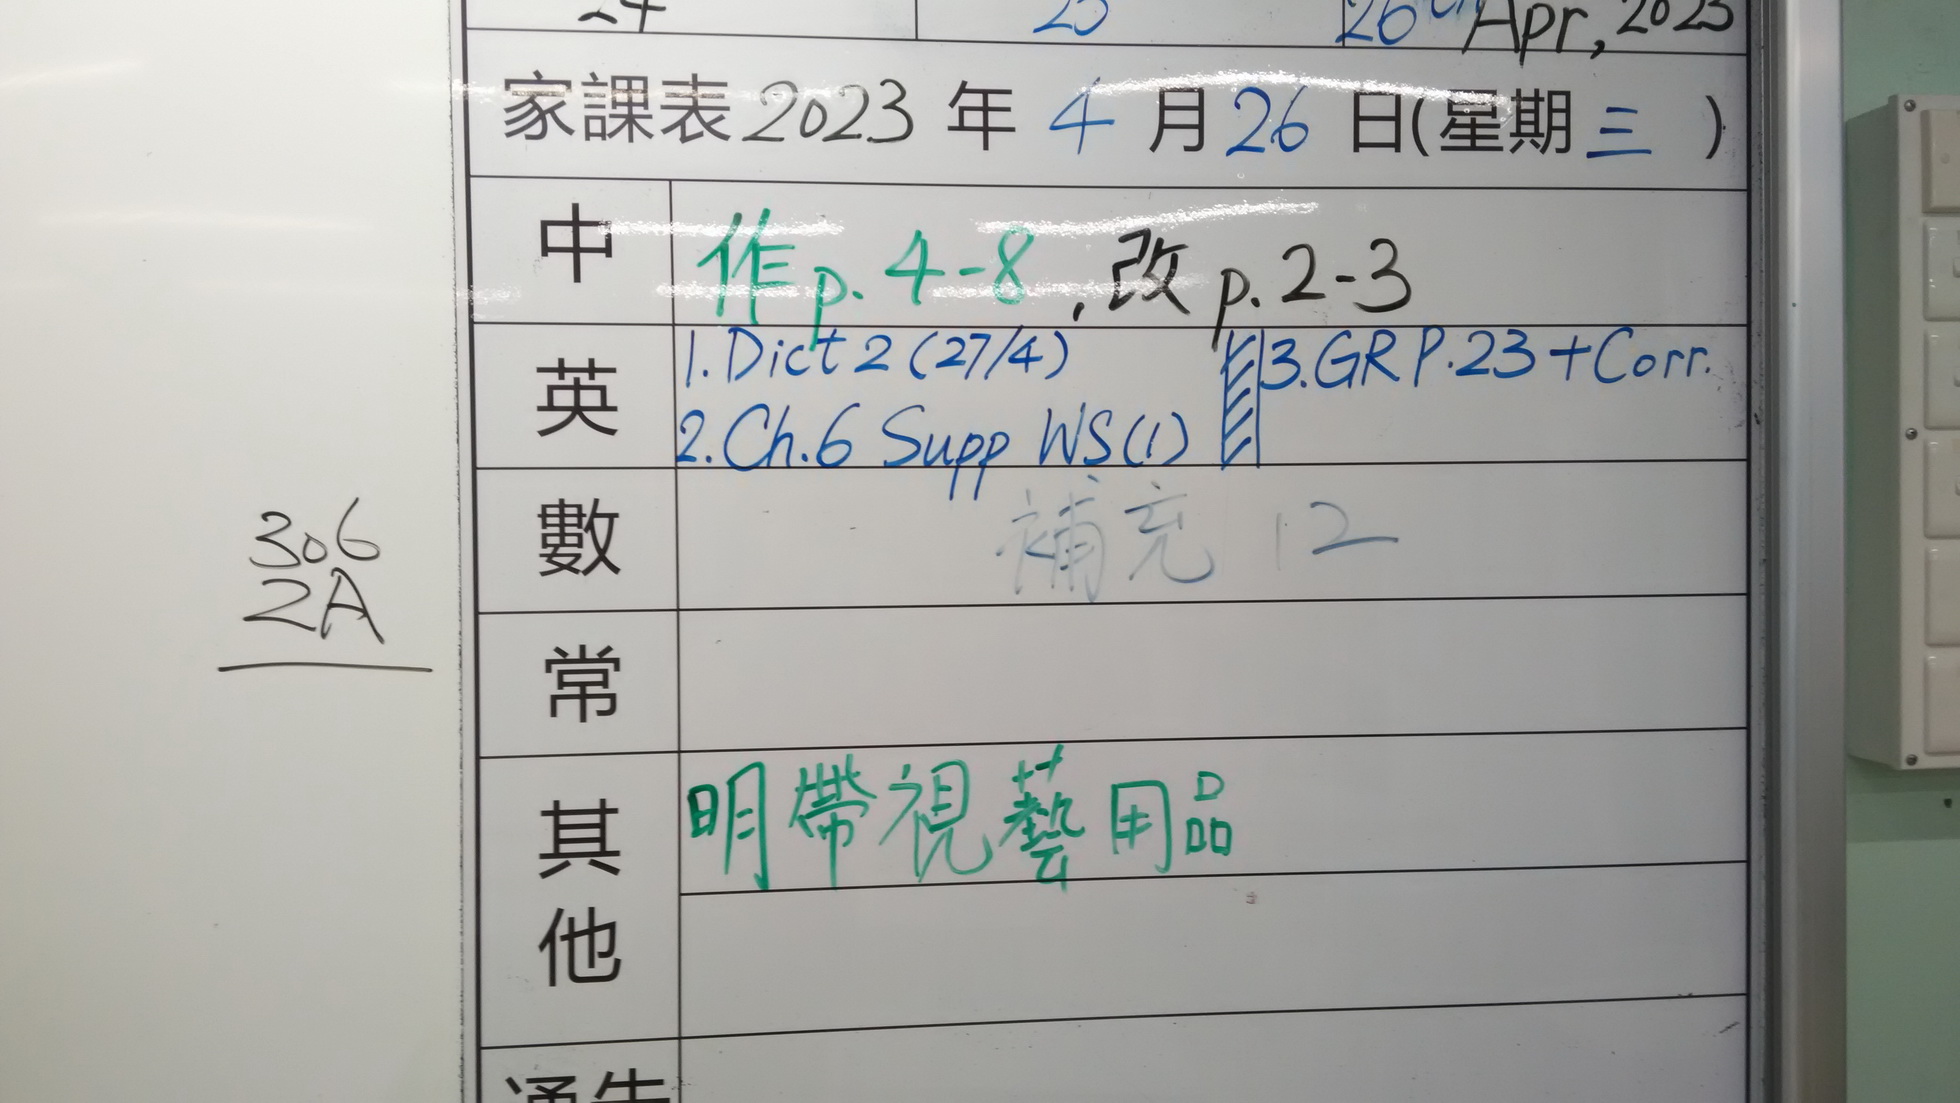 24 25 26th Apr, 2023
家課表2023 年 4 月 26 日(星期三 )
中 作p. 4-8 , 改 p. 2-3
英 1. Dict 2 (27/4) 3. GR P.23 + Corr.
2. Ch.6 Supp WS(1)
數 補充 12
306
2A
常
其他 明帶視藝用品
通告